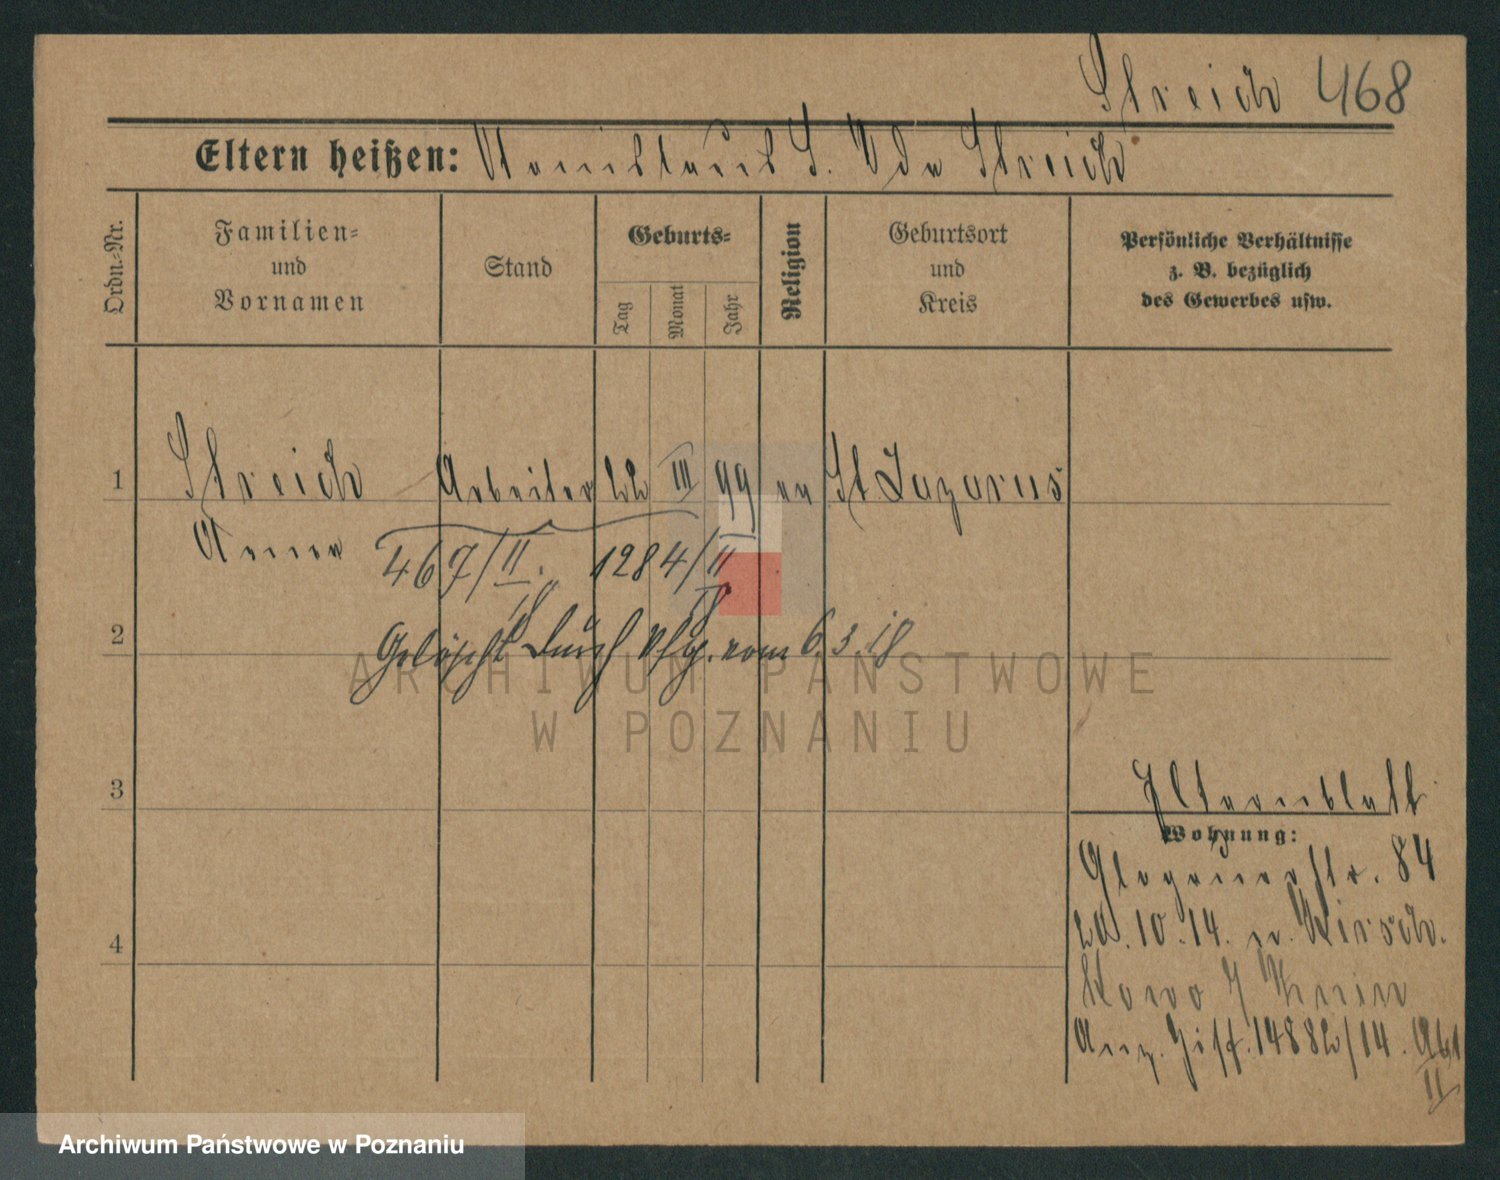 Streich 468
Eltern heißen: Konstant S. Ida Streich
Ordn.-Nr.
Familien-
und
Vornamen
Stand
Geburts-
Tag
Monat
Jahr
Religion
Geburtsort
und
Kreis
Persönliche Verhältnisse
z. B. bezüglich
des Gewerbes usw.
1 Streich Arbeiter 22 III 99 ev St Lazarus
Anna
467/II. 1284/II
18 18
2 Gelöscht durch Vfg. vom 6.3.18
ARCHIWUM PAŃSTWOWE
W POZNANIU
3
Elternblatt
Wohnung:
Glogauerstr. 84
20.10.14. n. Kirsch.
4
Kowo
Anz. Ziff. 14882/14. Abt
II
Archiwum Państwowe w Poznaniu